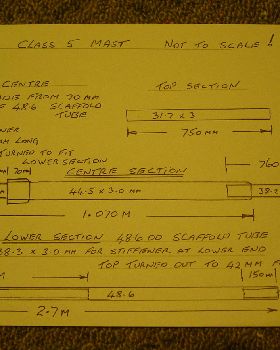 CLASS 5 MAST NOT TO SCALE !
CENTRE
FROM 70 MM
48.6 SCAFFOLD
TUBE
TOP SECTION
31.7 x 3
750 MM
LONG
TURNED TO FIT
LOWER SECTION
70M
760
CENTRE SECTION
44.5 x 3.0 MM
38.2
1.070 M
LOWER SECTION 48.6 OD SCAFFOLD TUBE
38.3 x 3.0 MM FOR STIFFENER AT LOWER END
TOP TURNED OUT TO 42 MM F
M
150M
48.6
2.7 M